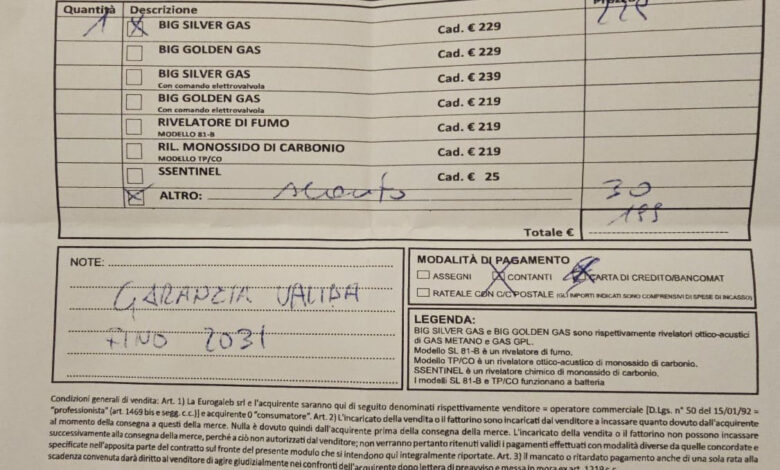 Quantità Descrizione Prezzo
1 X BIG SILVER GAS Cad. € 229
BIG GOLDEN GAS Cad. € 229
BIG SILVER GAS Cad. € 239
Con comando elettrovalvola
BIG GOLDEN GAS Cad. € 219
Con comando elettrovalvola
RIVELATORE DI FUMO Cad. € 219
MODELLO 81-B
RIL. MONOSSIDO DI CARBONIO Cad. € 219
MODELLO TP/CO
SSENTINEL Cad. € 25
X ALTRO: sconto 30
Totale € 199
NOTE:
GARANZIA VALIDA
FINO 2031
MODALITÀ DI PAGAMENTO
ASSEGNI CONTANTI CARTA DI CREDITO/BANCOMAT
RATEALE CON C/C POSTALE (GLI IMPORTI INDICATI SONO COMPRENSIVI DI SPESE DI INCASSO)
LEGENDA:
BIG SILVER GAS e BIG GOLDEN GAS sono rispettivamente rivelatori ottico-acustici
di GAS METANO e GAS GPL.
Modello SL 81-B è un rivelatore di fumo.
Modello TP/CO è un rivelatore ottico-acustico di monossido di carbonio.
SSENTINEL è un rivelatore chimico di monossido di carbonio.
I modelli SL 81-B e TP/CO funzionano a batteria
Condizioni generali di vendita: Art. 1) La Eurogaleb srl e l'acquirente saranno qui di seguito denominati rispettivamente venditore = operatore commerciale [D.Lgs. n° 50 del 15/01/92 =
"professionista" (art. 1469 bis e segg. c.c.)] e acquirente 0 "consumatore". Art. 2) L'incaricato della vendita o il fattorino sono incaricati dal venditore a incassare quanto dovuto dall'acquirente
al momento della consegna a questi della merce. Nulla è dovuto quindi dall'acquirente prima della consegna della merce. L'incaricato della vendita o il fattorino non possono incassare
successivamente alla consegna della merce, perché a ciò non autorizzati dal venditore; non verranno pertanto ritenuti validi i pagamenti effettuati con modalità diverse da quelle concordate e
specificate nell'apposita parte del contratto sul fronte del presente modulo che si intendono qui integralmente riportate. Art. 3) il mancato o ritardato pagamento anche di una sola rata alla
scadenza convenuta darà diritto al venditore di agire giudizialmente nei confronti dell'acquirente dopo lettera di preavviso e messa in mora ex art. 1219 c.c.